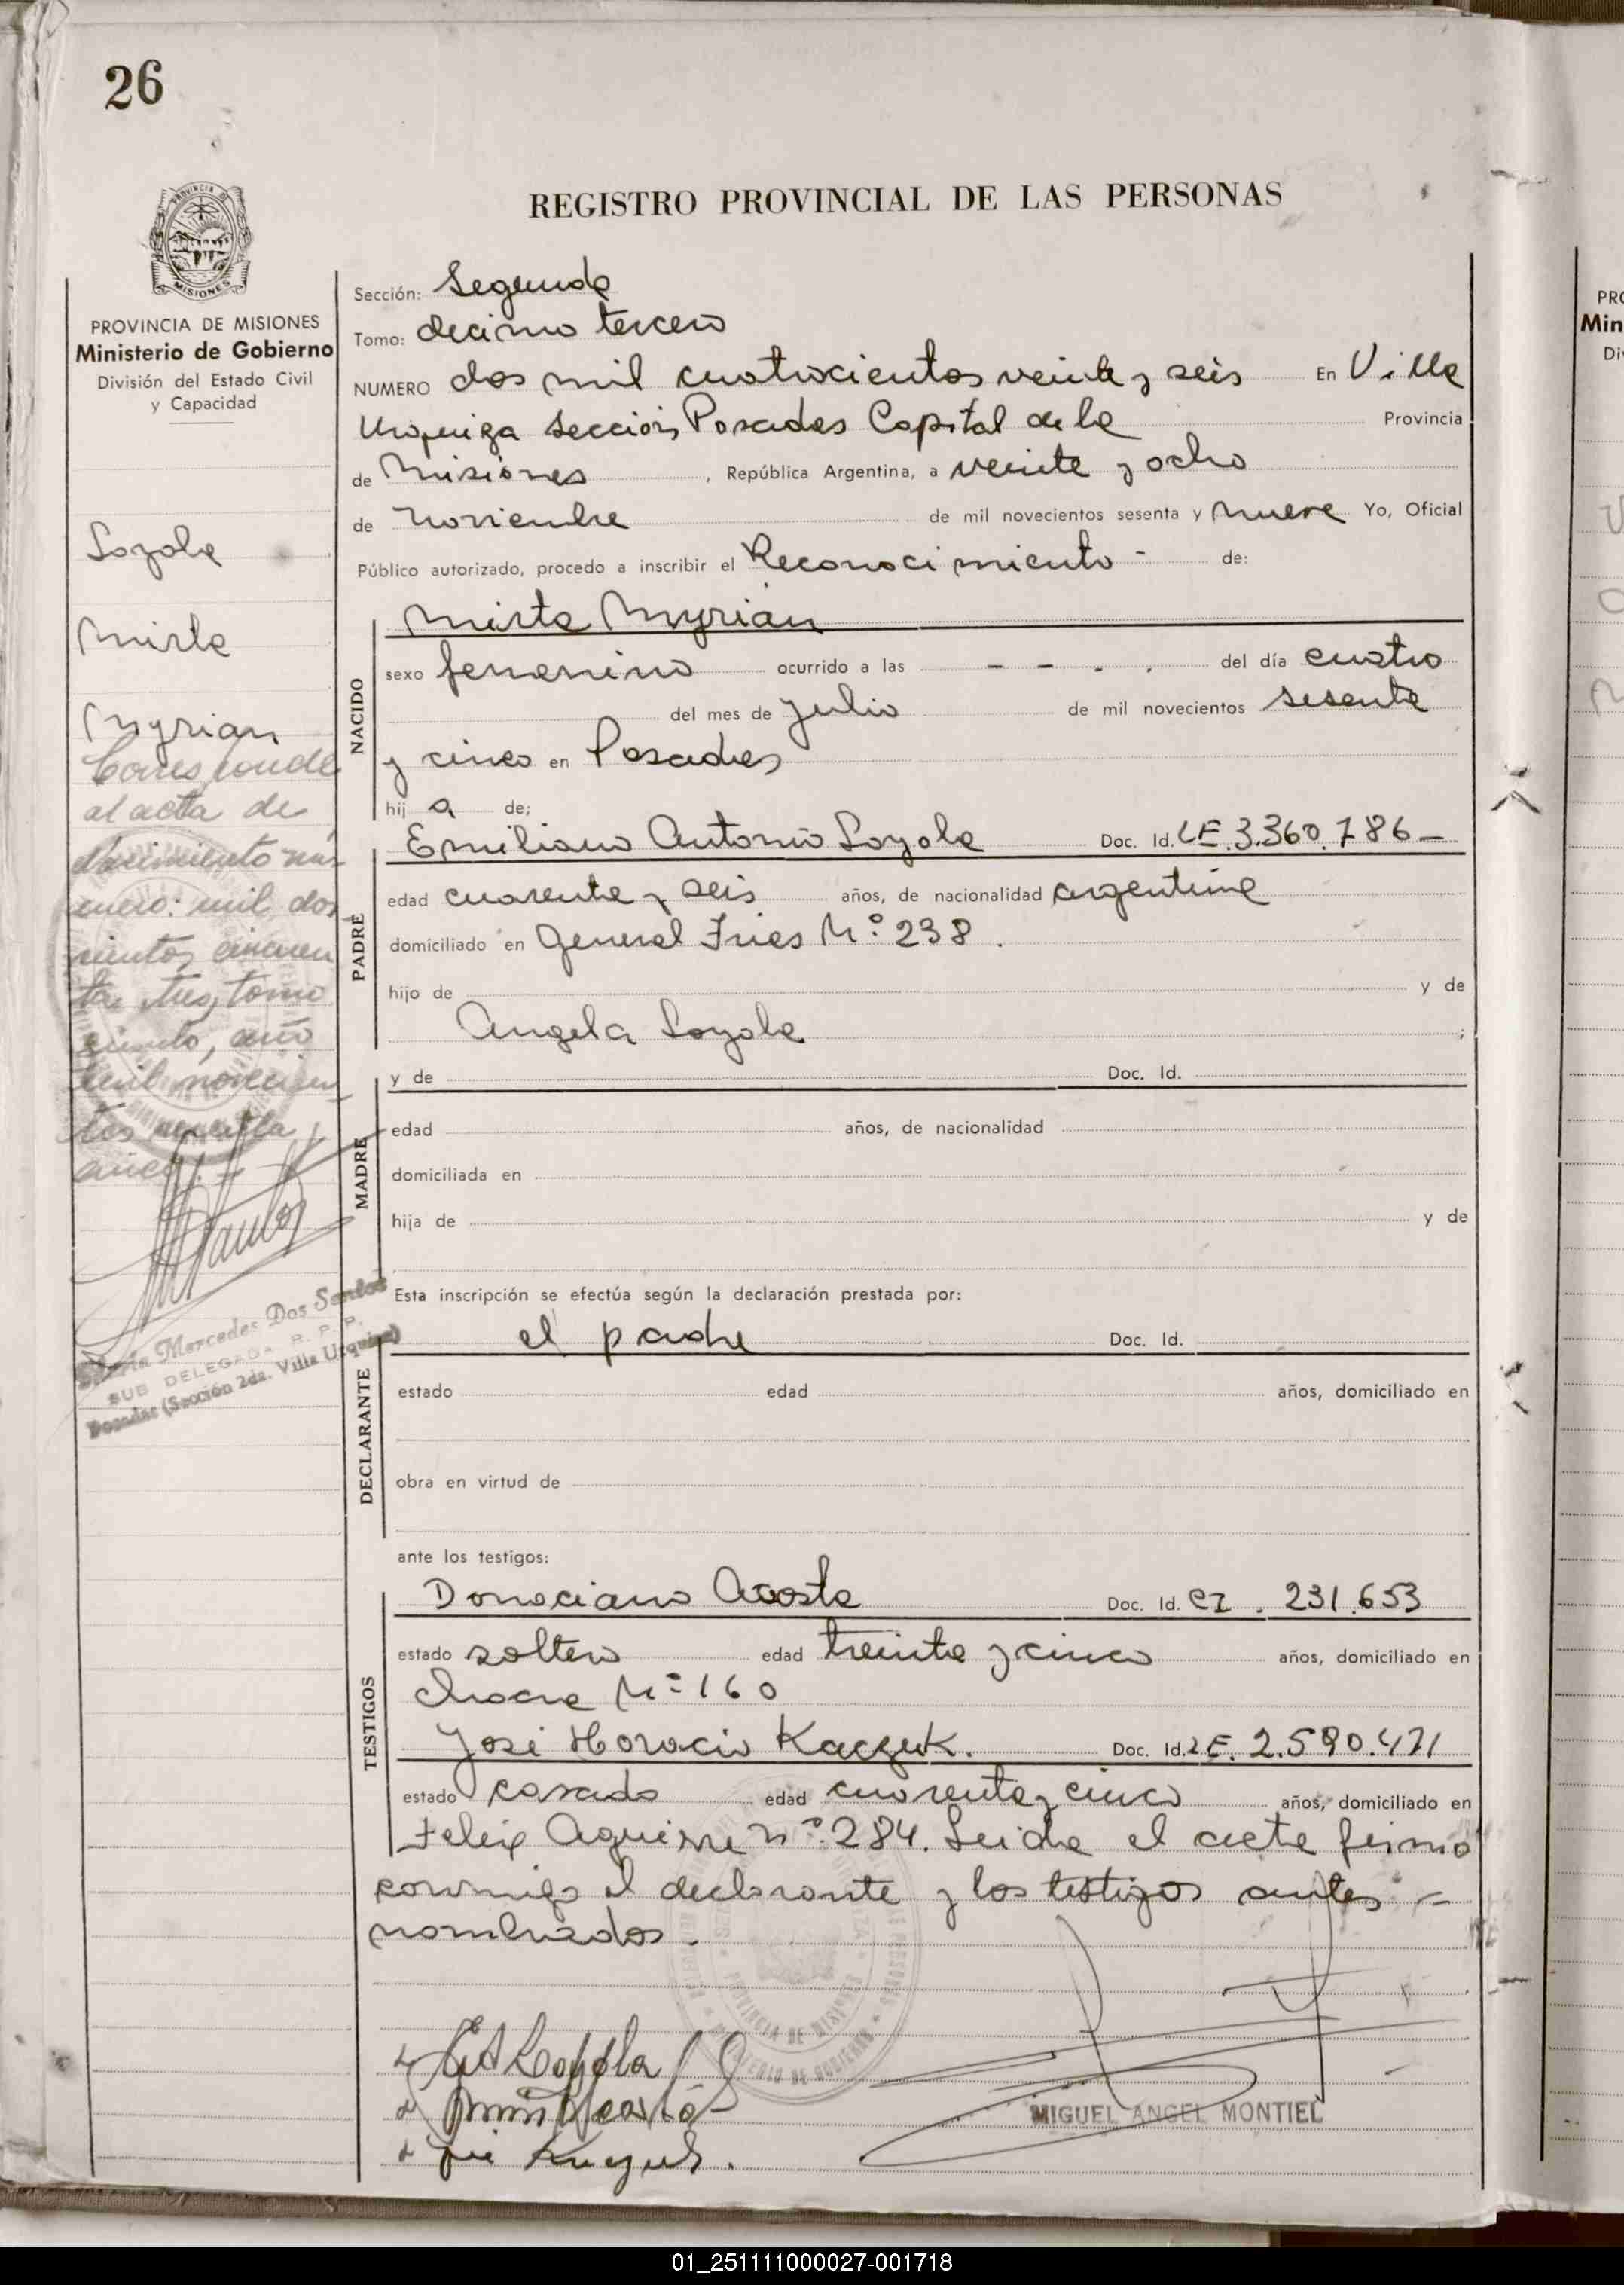 26
REGISTRO PROVINCIAL DE LAS PERSONAS
PROVINCIA DE MISIONES
Ministerio de Gobierno
División del Estado Civil
y Capacidad
Loyola
Mirta
Myrian
Corresponde
al acta de
nacimiento nú
mero: mil dos
cientos cincuen
ta tres, tomo
año
mil novecien
tos
Dos Santos
SUB DELEGADA R. P. P.
Posadas (Sección 2da. Villa Urquiza)
Sección: Segunda
Tomo: decimo tercero
NUMERO dos mil cuatrocientos veinte y seis En Villa
Urquiza sección Posadas Capital de la Provincia
de Misiones, República Argentina, a veinte y ocho
de noviembre de mil novecientos sesenta y nueve Yo, Oficial
Público autorizado, procedo a inscribir el Reconocimiento - de:
NACIDO
Mirta Myrian
sexo femenino ocurrido a las - - - - del día cuatro
del mes de julio de mil novecientos sesenta
y cinco en Posadas
hij a de;
PADRE
Emiliano Antonio Loyola Doc. Id. LE.3.360.786-
edad cuarenta y seis años, de nacionalidad argentina
domiciliado en General Frias N° 238.
hijo de y de
Angela Loyola ;
MADRE
y de Doc. Id.
edad años, de nacionalidad
domiciliada en
hija de y de
Esta inscripción se efectúa según la declaración prestada por:
DECLARANTE
el padre Doc. Id.
estado edad años, domiciliado en
obra en virtud de
ante los testigos:
TESTIGOS
Donaciano Acosta Doc. Id. CI. 231.653
estado soltero edad treinta y cinco años, domiciliado en
N° 160
José Horacio Kaczuk. Doc. Id. LE. 2.590.471
estado casado edad cuarenta y cinco años, domiciliado en
Felix Aguirre n° 284. Leida el acta firmo
conmigo el declarante y los testigos antes -
nombrados.
E A Loyola
MIGUEL ANGEL MONTIEL
01_251111000027-001718